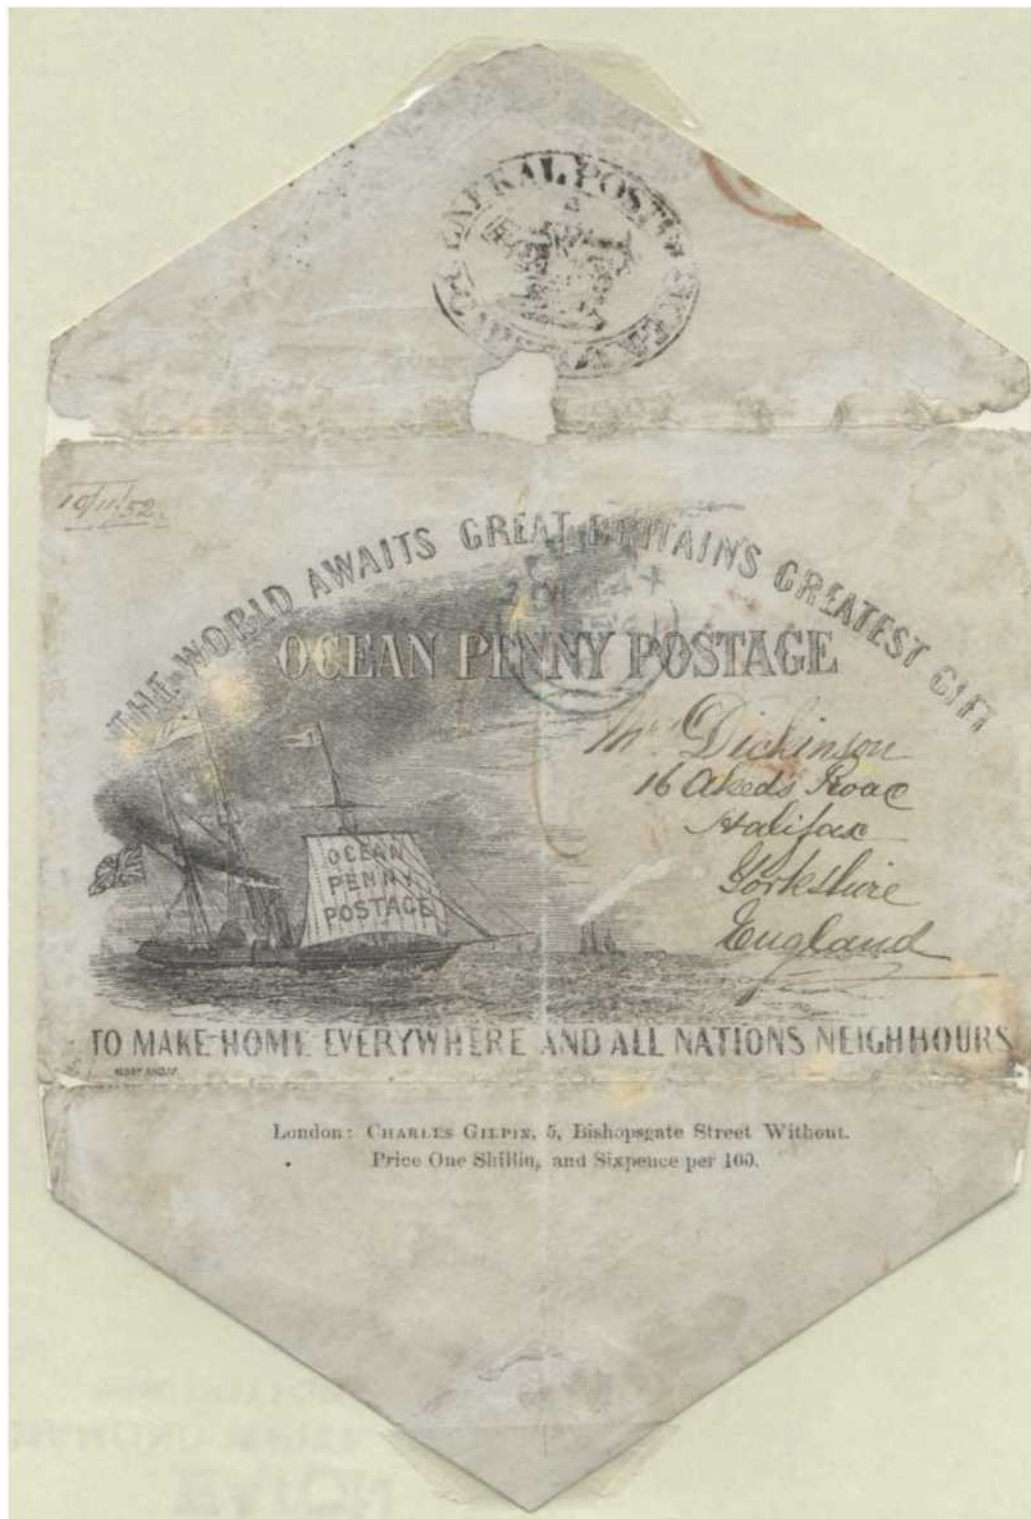 GENERAL POST
10/11/52.
THE WORLD AWAITS GREAT BRITAIN'S GREATEST GIFT
OCEAN PENNY POSTAGE
Mr. Dickinson
16 Akeds Road
Halifax
Yorkshire
England
OCEAN
PENNY
POSTAGE
TO MAKE HOME EVERYWHERE AND ALL NATIONS NEIGHBOURS
London: CHARLES GILPIN, 5, Bishopsgate Street Without.
Price One Shilling and Sixpence per 100.